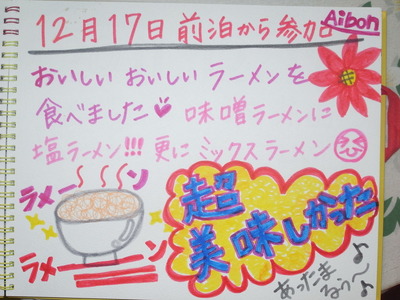 12月17日前泊から参加
Aibon
おいしい おいしい ラーメンを
食べました♥ 味噌ラーメンに
塩ラーメン!!! 更に ミックスラーメン
ラメーン
ラメーン
超
美味しかった
あったま
るぅ〜♪